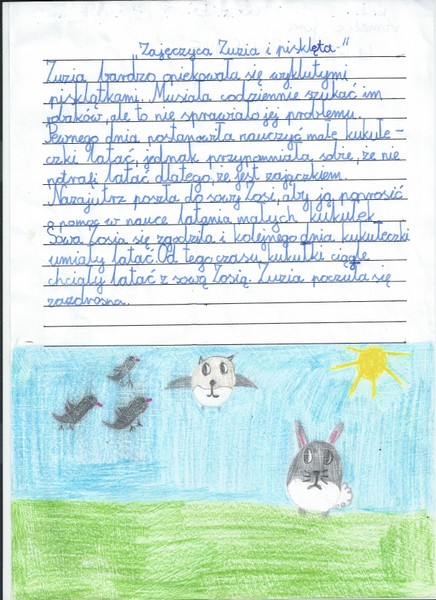 „Zajęczyca Zuzia i pisklęta."
Zuzia bardzo opiekowała się wyklutymi
pisklątkami. Musiała codziennie szukać im
robaków, ale to nie sprawiało jej problemu.
Pewnego dnia postanowiła nauczyć małe kukułe-
czki latać, jednak przypomniała sobie, że nie
potrafi latać dlatego, że jest zajączkiem.
Nazajutrz poszła do sowy Zosi, aby ją poprosić
o pomoc w nauce latania małych kukułek.
Sowa Zosia się zgodziła i kolejnego dnia kukułeczki
umiały latać. Od tego czasu kukułki ciągle
chciały latać z sową Zosią. Zuzia poczuła się
zazdrosna.